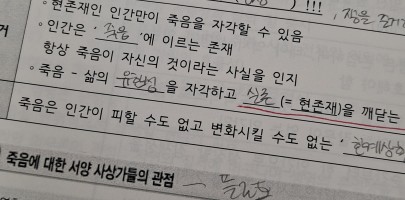 ) !!! , 쟁을
◦ 현존재인 인간만이 죽음을 자각할 수 있음
거
◦ 인간은 ' 죽음 '에 이르는 존재
항상 죽음이 자신의 것이라는 사실을 인지
◦ 죽음 - 삶의 유한성 을 자각하고 실존 (= 현존재)을 깨닫는
죽음은 인간이 피할 수도 없고 변화시킬 수도 없는 ' 한계상황
죽음에 대한 서양 사상가들의 관점